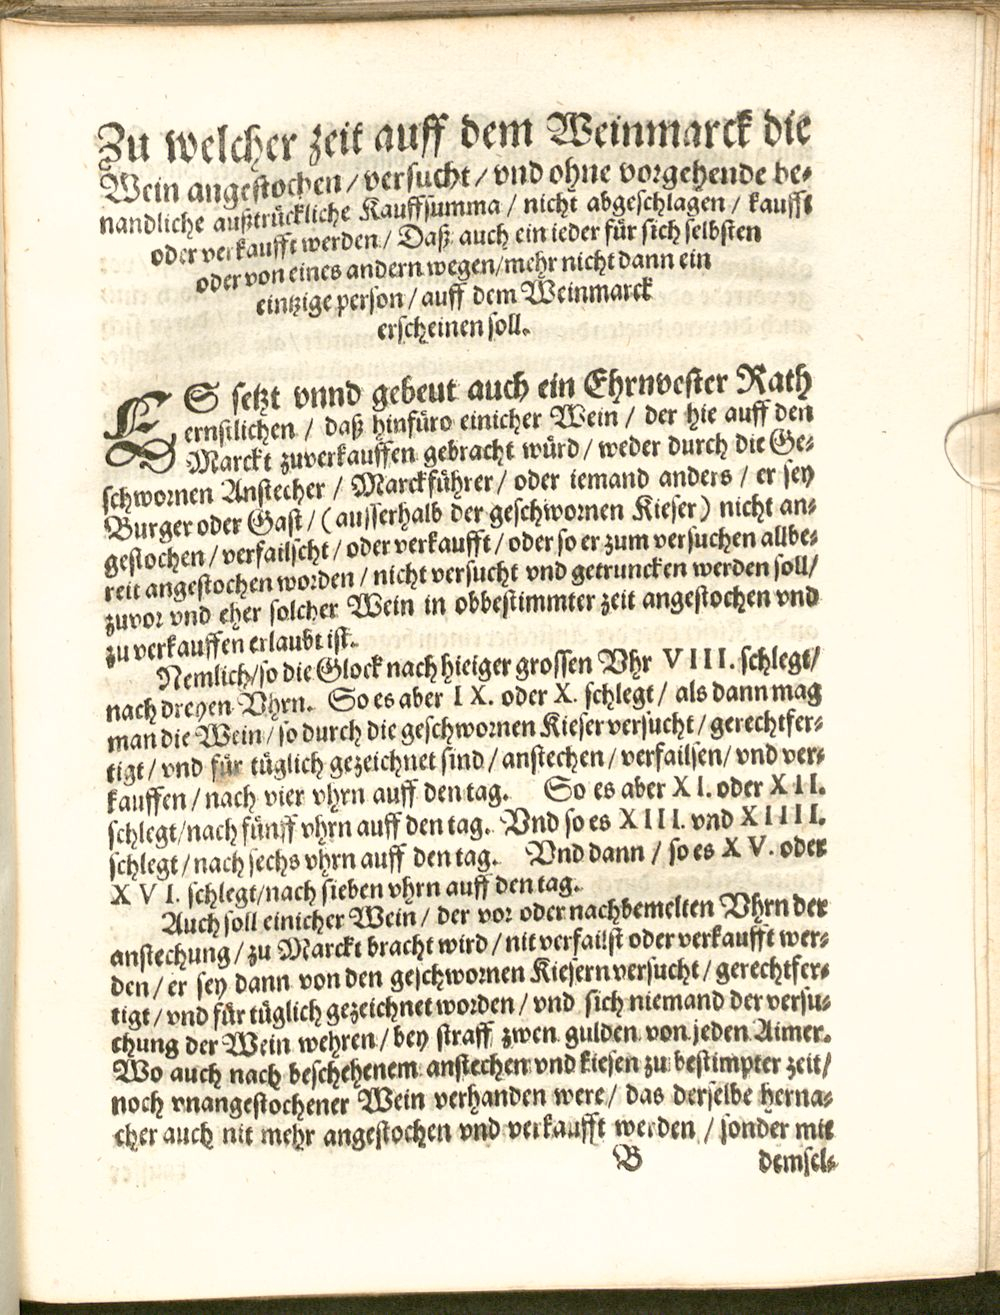 Zu welcher zeit auff dem Weinmarck die
Wein angestochen / versucht / vnd ohne vorgehende be-
nandliche außtrückliche Kauffsumma / nicht abgeschlagen / kaufft
oder verkaufft werden / Daß auch ein ieder für sich selbsten
oder von eines andern wegen / mehr nicht dann ein
eintzige person / auff dem Weinmarck
erscheinen soll.
ES setzt vnnd gebeut auch ein Ehrnvester Rath
ernstlichen / daß hinfüro einicher Wein / der hie auff den
Marckt zuverkauffen gebracht würd / weder durch die Ge-
schwornen Anstecher / Marckführer / oder iemand anders / er sey
Burger oder Gast / (ausserhalb der geschwornen Kieser) nicht an-
gestochen / verfailscht / oder verkaufft / oder so er zum versuchen allbe-
reit angestochen worden / nicht versucht vnd getruncken werden soll /
zuvor vnd eher solcher Wein in obbestimmter zeit angestochen vnd
zu verkauffen erlaubt ist.
Nemlich / so die Glock nach hieiger grossen Vhr VIII. schlegt /
nach dreyen Vhrn. So es aber IX. oder X. schlegt / als dann mag
man die Wein / so durch die geschwornen Kieser versucht / gerechtfer-
tigt / vnd für tüglich gezeichnet sind / anstechen / verfailsen / vnd ver-
kauffen / nach vier vhrn auff den tag. So es aber XI. oder XII.
schlegt / nach fünff vhrn auff den tag. Vnd so es XIII. vnd XIIII.
schlegt / nach sechs vhrn auff den tag. Vnd dann / so es XV. oder
XVI. schlegt / nach sieben vhrn auff den tag.
Auch soll einicher Wein / der vor oder nachbemelten Vhrn der
anstechung / zu Marckt bracht wird / nit verfailst oder verkaufft wer-
den / er sey dann von den geschwornen Kiesern versucht / gerechtfer-
tigt / vnd für tüglich gezeichnet worden / vnd sich niemand der versu-
chung der Wein wehren / bey straff zwen gulden von jeden Aimer.
Wo auch nach beschehenem anstechen vnd kiesen zu bestimpter zeit /
noch vnangestochener Wein verhanden were / das derselbe herna-
cher auch nit mehr angestochen vnd verkaufft werden / sonder mit
B demsel-